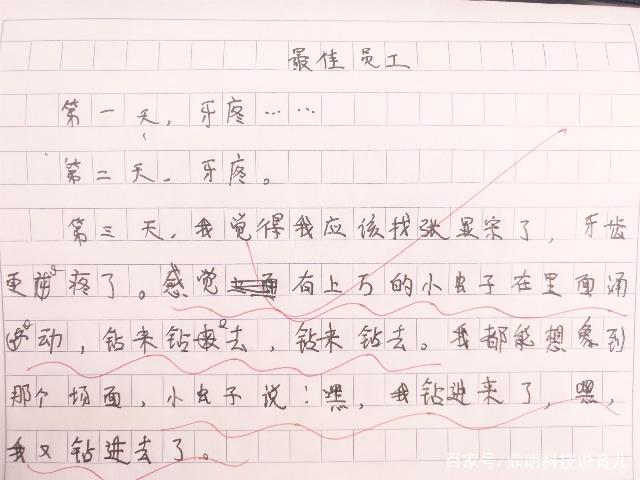 最佳员工
第一天，牙疼……
第二天，牙疼。
第三天，我觉得我应该找张显宗了，牙齿
更疼了。感觉有上万的小虫子在里面涌
动，钻来钻去，钻来钻去。我都能想象到
那个场面，小虫子说：嘿，我钻进来了，嘿，
我又钻进去了。
百家号/鼎朗科技说育儿